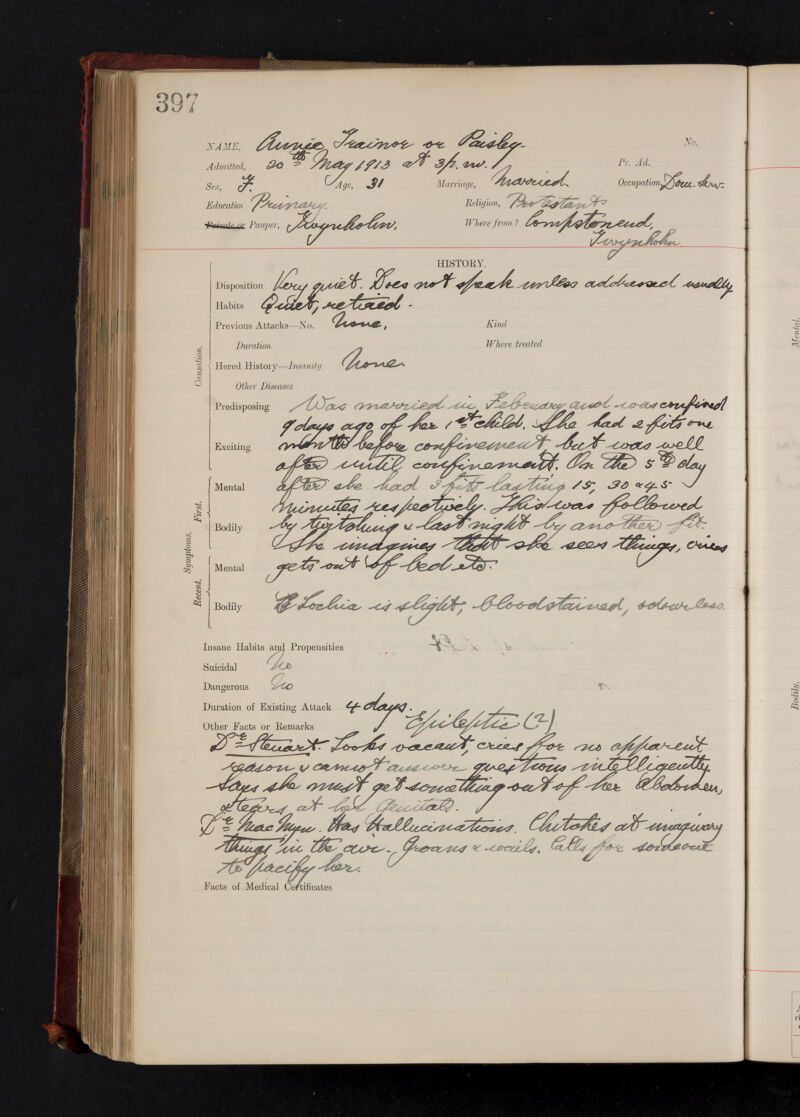 397
NAME, Annie Trainor or Paisley. No.
Admitted, 20th May 1913 at 3 p.m. Pr. Ad.
Sex, F. Age, 31 Marriage, Married. Occupation, Dom. Serv.
Education Primary. Religion, Protestant
Private or Pauper, Twynholm. Where from? Compstonend,
Twynholm
HISTORY.
Disposition Very quiet. Does not speak unless addressed usually
Habits Quiet, retired.
Previous Attacks—No. None. Kind
Duration Where treated
Hered History—Insanity None.
Other Diseases
Causation.
Predisposing Was married in February and was confined
9 days ago of her 1st child. She had 2 fits one
Exciting month before confinement but was well
after until confinement. On the 5th day
Mental after she had 3 fits lasting 15, 30 & 45
minutes respectively. This was followed
Bodily by twitching & last night by another fit.
She imagines that she sees things, cries
Mental gets out of bed etc.
Bodily Lochia is slight, bloodstained, odourless.
Symptoms.
First.
Recent.
Insane Habits and Propensities
Suicidal No
Dangerous No
Duration of Existing Attack 4 days.
Other Facts or Remarks Epileptic (?)
Dr Steuart. Looks vacant, cries for no apparent
reason & cannot answer questions intelligently
Says she must get something out of her Abdomen,
& tears at her Genitals.
Dr MacMyn. Has Hallucinations. Clutches at imaginary
things in the air. Groans & wails. Calls for someone
to pacify her.
Facts of Medical Certificates
Mental,
Bodily,